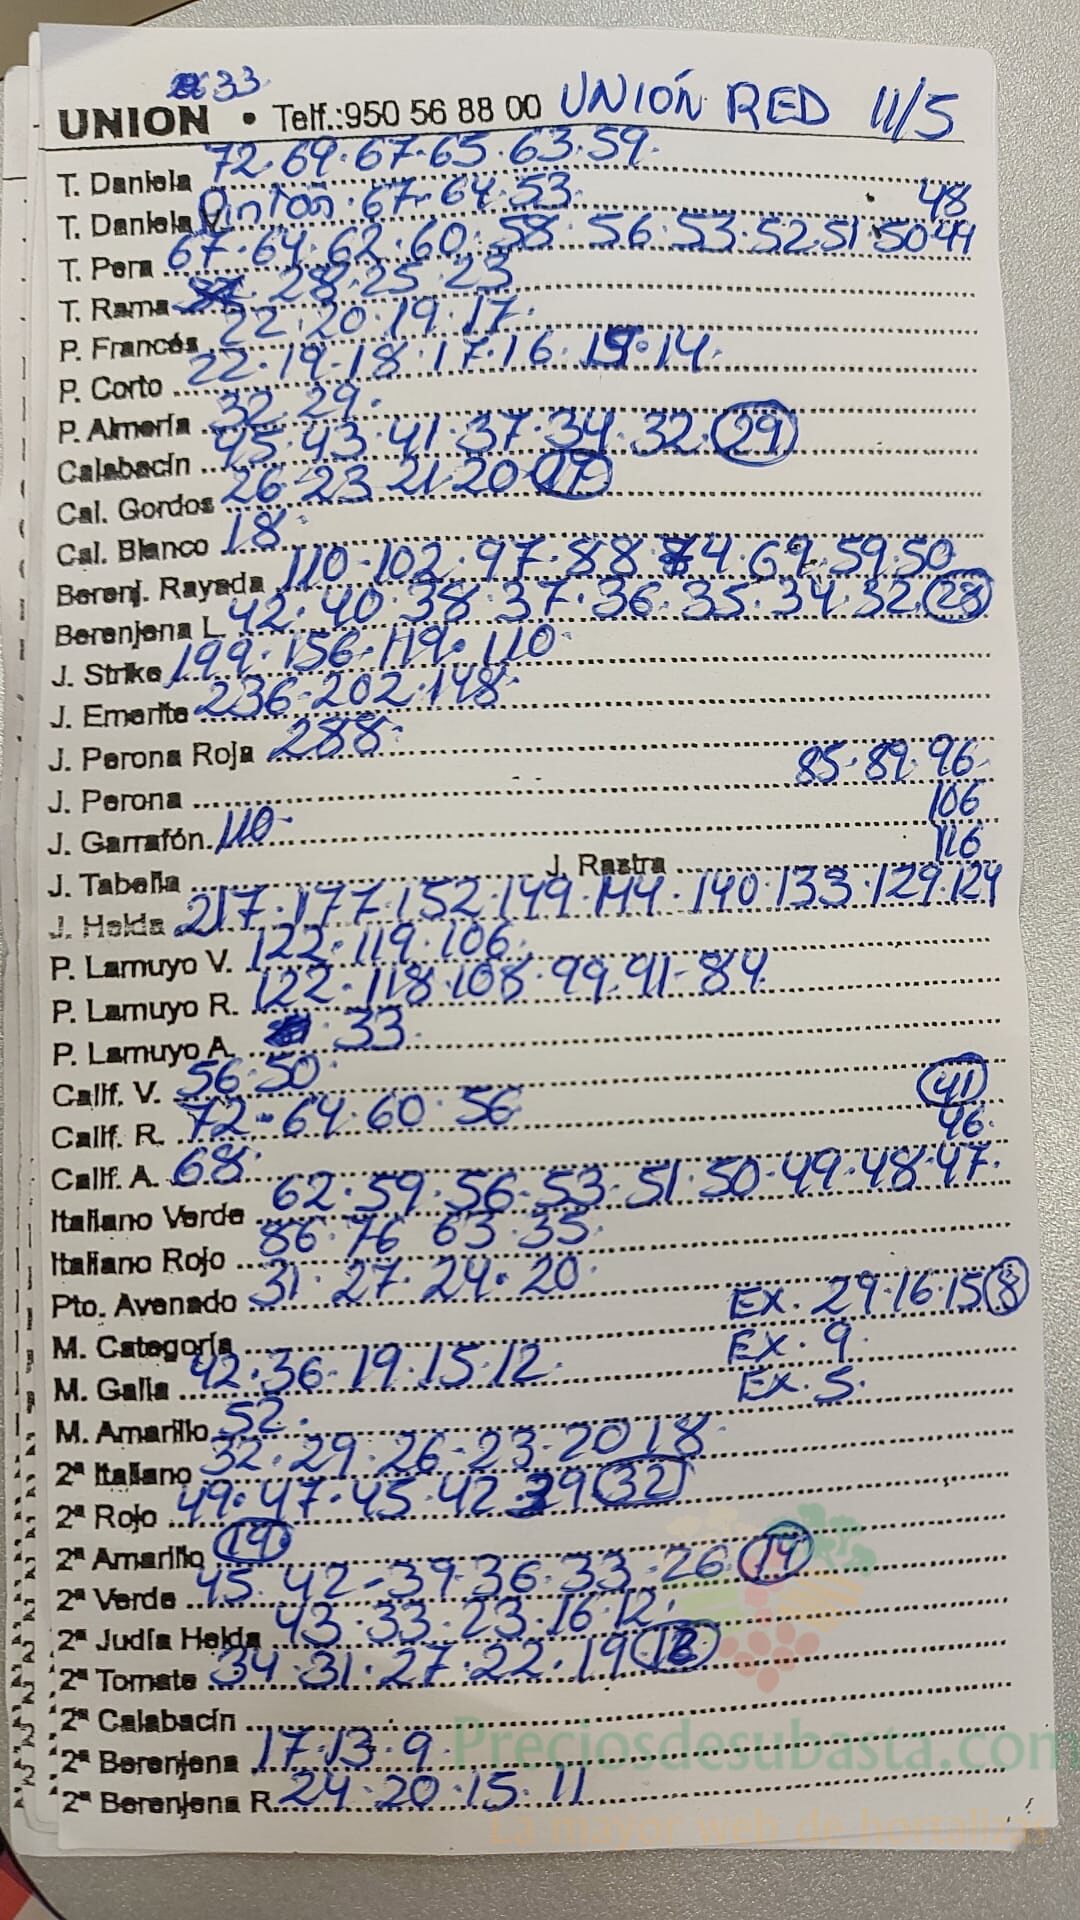 33
UNION • Telf.:950 56 88 00 UNIÓN RED 11/5
T. Daniela 72·69·67·65·63·59·
T. Daniela V. Pintón·67·64·53· 48
T. Pera 67·64·62·60·58·56·53·52·51·50·44
T. Rama 28·25·23
P. Francés 22·20·19·17·
P. Corto 22·19·18·17·16·15·14·
P. Almería 32·29·
Calabacín 45·43·41·37·34·32·29
Cal. Gordos 26·23·21·20·17
Cal. Blanco 18·
Berenj. Rayada 110·102·97·88·74·69·59·50
Berenjena L. 42·40·38·37·36·35·34·32·28
J. Strike 199·156·119·110·
J. Emerite 236·202·148·
J. Perona Roja 288·
J. Perona 85·89·96·
J. Garrafón 110· 106
J. Tabella J. Rastra 116
J. Helda 217·177·152·149·144·140·133·129·124
P. Lamuyo V. 122·119·106·
P. Lamuyo R. 122·118·108·99·91·84
P. Lamuyo A. 33·
Calif. V. 56·50·
Calif. R. 72·64·60·56 41
Calif. A. 68· 46·
Italiano Verde 62·59·56·53·51·50·49·48·47·
Italiano Rojo 86·76·63·35·
Pto. Avenado 31·27·24·20·
M. Categoría EX·29·16·15 8
M. Galia 42·36·19·15·12· EX·9·
M. Amarillo 52· EX·5·
2ª Italiano 32·29·26·23·20·18·
2ª Rojo 49·47·45·42·39 32
2ª Amarillo 14
2ª Verde 45·42·39·36·33·26 14
2ª Judía Helda 43·33·23·16·12·
2ª Tomate 34·31·27·22·19
2ª Calabacín
2ª Berenjena 17·13·9·
2ª Berenjena R. 24·20·15·11
Preciosdesubasta.com
La mayor web de hortalizas